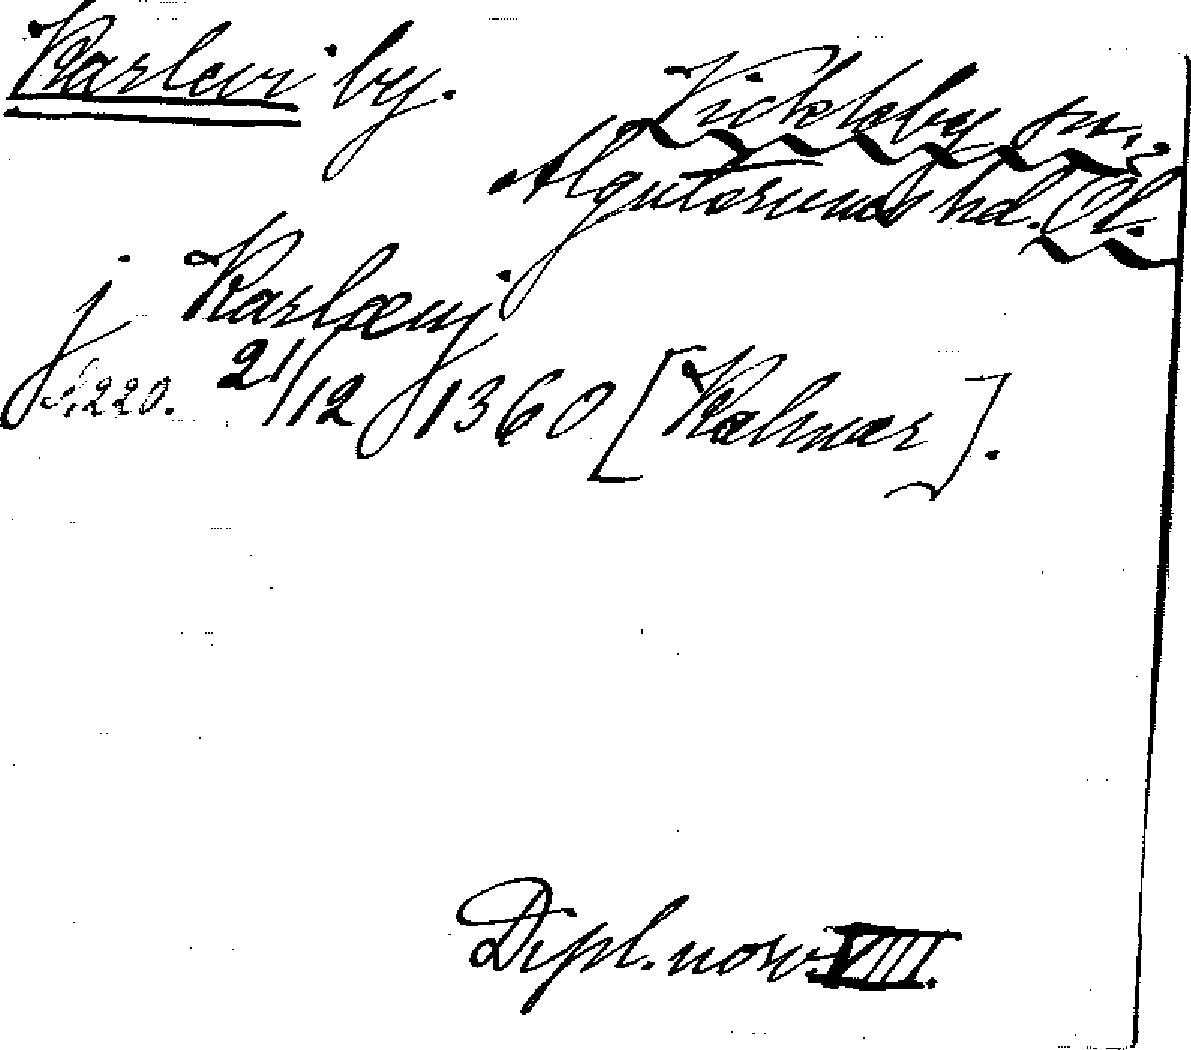 Karlevi by.
Vickleby sn,
Algutsrums hd. Öl.
j Karlæuj
S. 220. 21/12 1360 [Kalmar].
Dipl. norv. VIII.